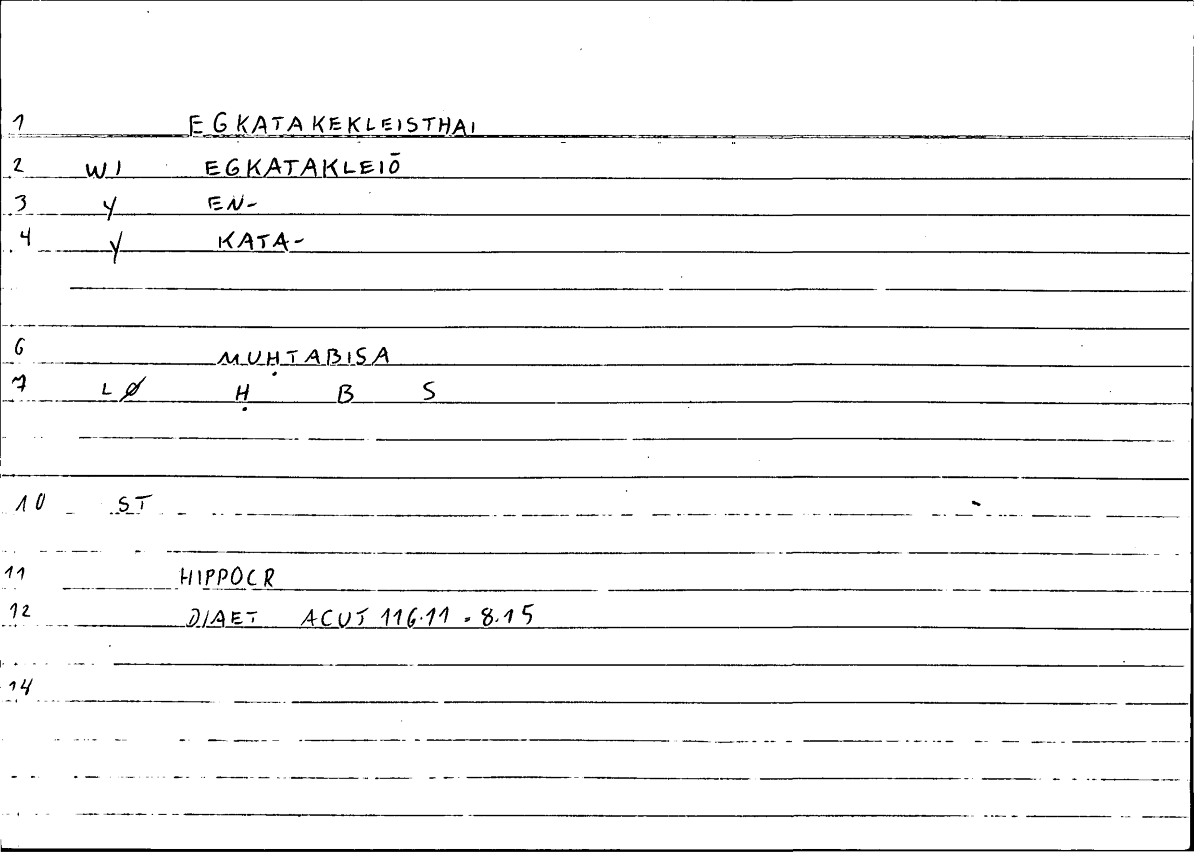 1 EGKATAKEKLEISTHAI
2 WI EGKATAKLEIŌ
3 Y EN-
4 Y KATA-
6 MUḤTABISA
7 LØ Ḥ B S
10 ST
11 HIPPOCR
12 DIAET ACUT 116.11 - 8.15
14